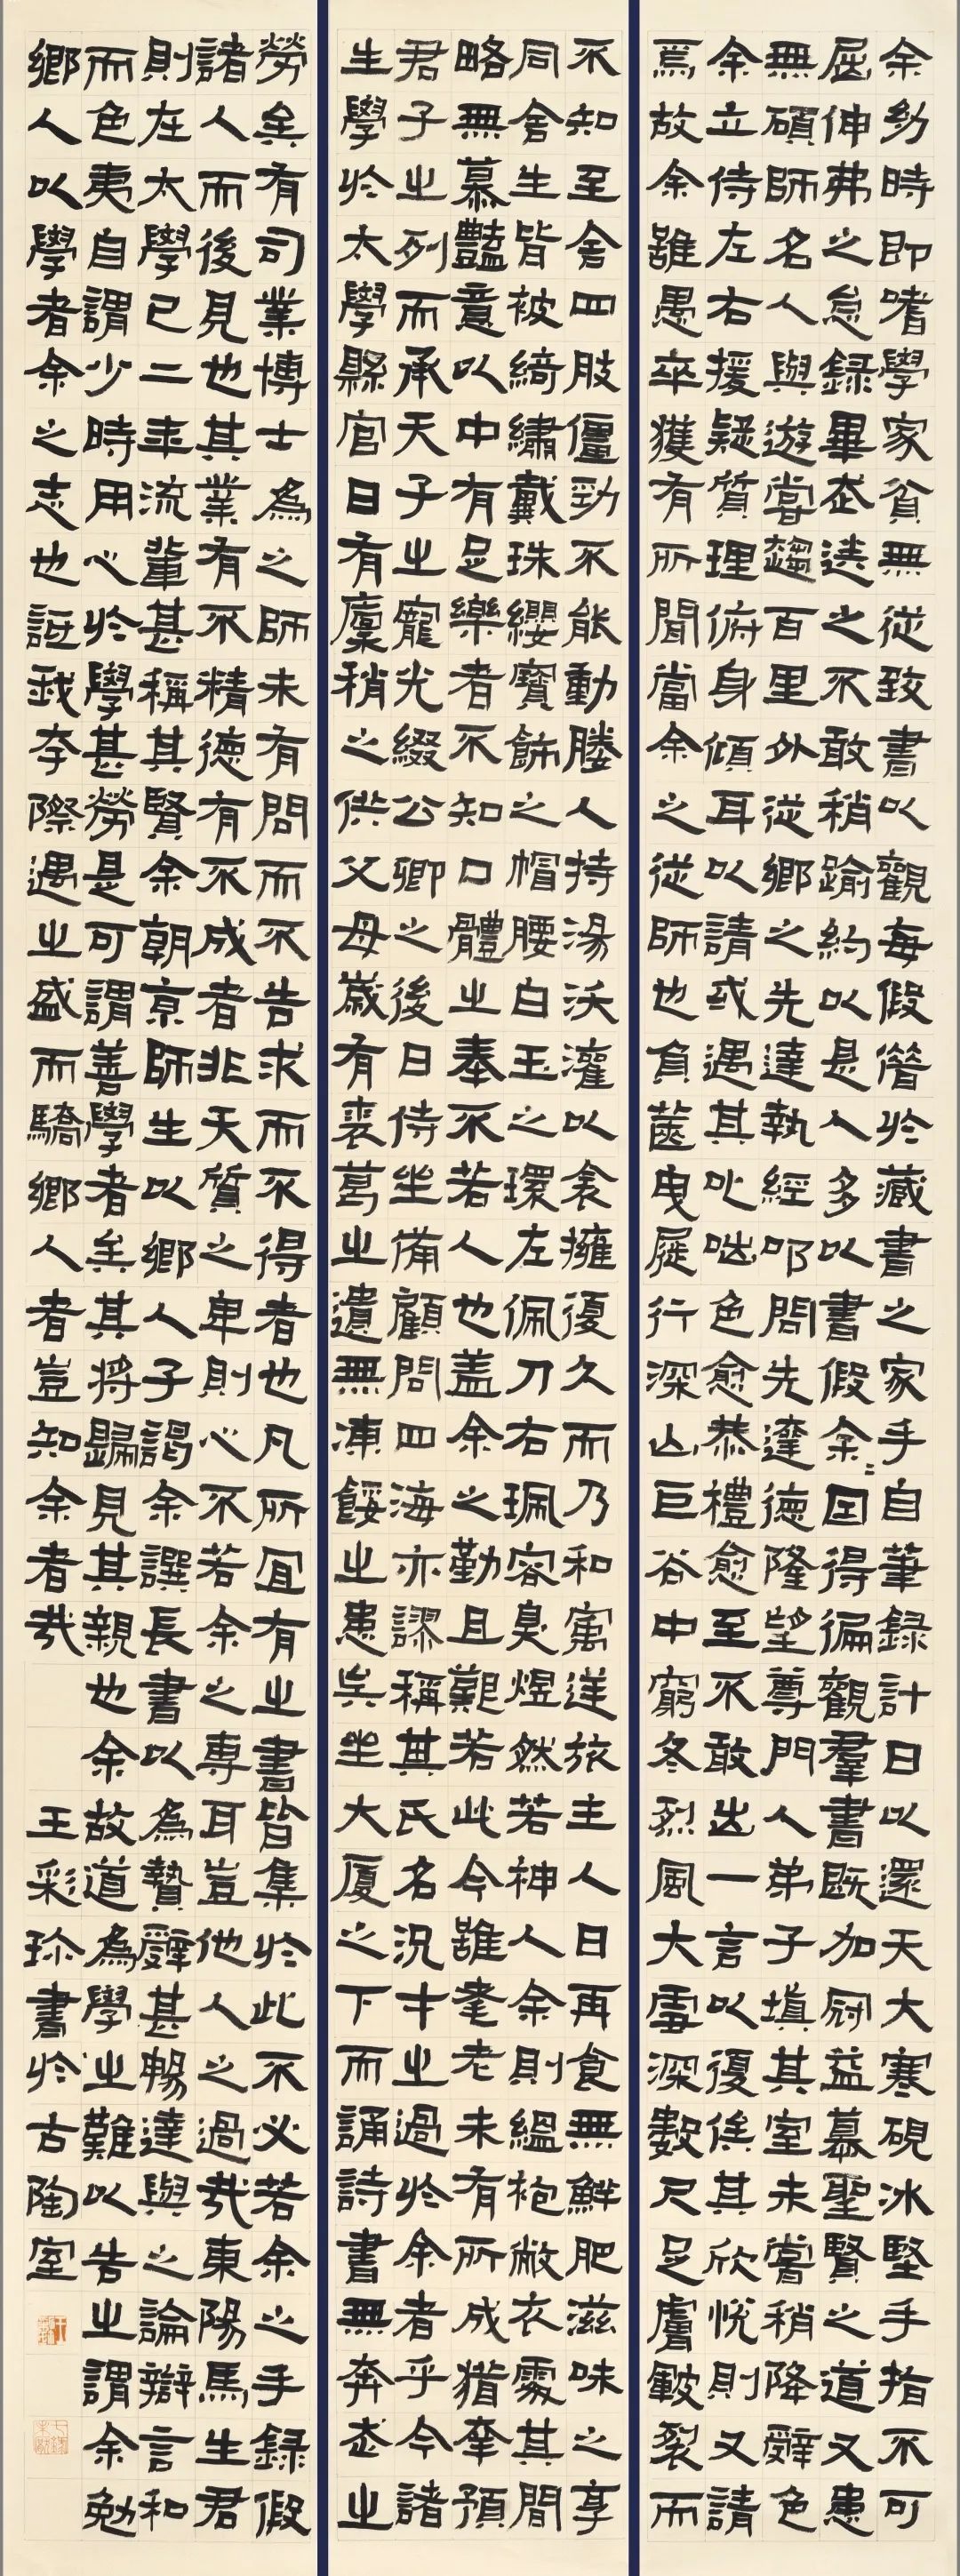 余幼時即嗜學家貧無從致書以觀每假借於藏書之家手自筆錄計日以還天大寒硯冰堅手指不可
屈伸弗之怠錄畢走送之不敢稍踰約以是人多以書假余〻因得徧觀羣書既加冠益慕聖賢之道又患
無碩師名人與遊嘗趨百里外從鄉之先達執經叩問先達德隆望尊門人弟子填其室未嘗稍降辭色
余立侍左右援疑質理俯身傾耳以請或遇其叱咄色愈恭禮愈至不敢出一言以復俟其欣悅則又請
焉故余雖愚卒獲有所聞當余之從師也負篋曳屣行深山巨谷中窮冬烈風大雪深數尺足膚皸裂而
不知至舍四肢僵勁不能動媵人持湯沃灌以衾擁復久而乃和寓逆旅主人日再食無鮮肥滋味之享
同舍生皆被綺繡戴珠纓寶飾之帽腰白玉之環左佩刀右珮容臭煜然若神人余則縕袍敝衣處其間
略無慕豔意以中有足樂者不知口體之奉不若人也蓋余之勤且艱若此今雖耄老未有所成猶幸預
君子之列而承天子之寵光綴公卿之後日侍坐備顧問四海亦謬稱其氏名況才之過於余者乎今諸
生學於太學縣官日有廩稍之供父母歲有裘葛之遺無凍餒之患矣坐大廈之下而誦詩書無奔走之
勞矣有司業博士為之師未有問而不告求而不得者也凡所宜有之書皆集於此不必若余之手錄假
諸人而後見也其業有不精德有不成者非天質之卑則心不若余之專耳豈他人之過哉東陽馬生君
則在太學已二年流輩甚稱其賢余朝京師生以鄉人子謁余譔長書以為贄辭甚暢達與之論辯言和
而色夷自謂少時用心於學甚勞是可謂善學者矣其將歸見其親也余故道為學之難以告之謂余勉
鄉人以學者余之志也詆我夸際遇之盛而驕鄉人者豈知余者哉
王彩珍書於古陶室